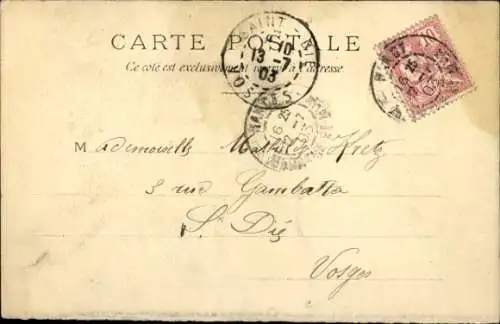 CARTE POSTALE
Ce côté est exclusivement réservé à l'adresse
SAINT-
10
13-7
03
VOS
NANTES
Mademoiselle Mathilde Kretz
3 rue Gambetta
St Dié
Vosges